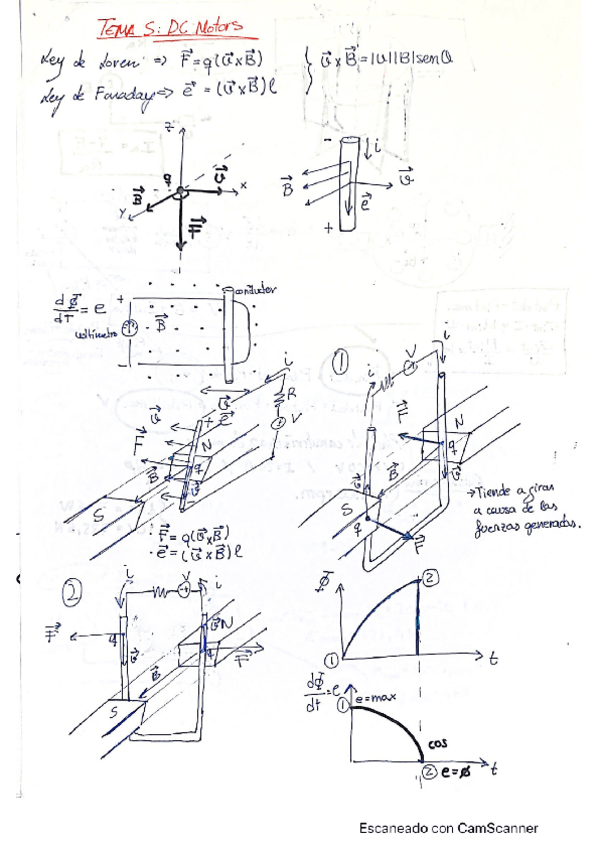 TEMA 5: DC Motors
Ley de Loren => F⃗ = q(v⃗ x B⃗)
Ley de Faraday => e⃗ = (v⃗ x B⃗) l
v⃗ x B⃗ = |v||B|senθ
z
q
v⃗
x
B⃗
y
F⃗
-
i
B⃗
v⃗
e⃗
+
dΦ/dt = e
+
voltimetro
B⃗
-
conductor
v⃗
i
R
V
v⃗
+
e⃗
F⃗
N
q
B⃗
v⃗
S
-
· F⃗ = q(v⃗ x B⃗)
· e⃗ = (v⃗ x B⃗) l
1
i
V
i
F⃗
N
q
B⃗
v⃗
v⃗
S
q
F⃗
→ Tiende a girar
a causa de las
fuerzas generadas.
2
i
V
i
F⃗
q
v⃗
v⃗
N
q
F⃗
B⃗
S
Φ
2
1
t
dΦ/dt = e
1
e=max
cos
2 e=ø
t
Escaneado con CamScanner